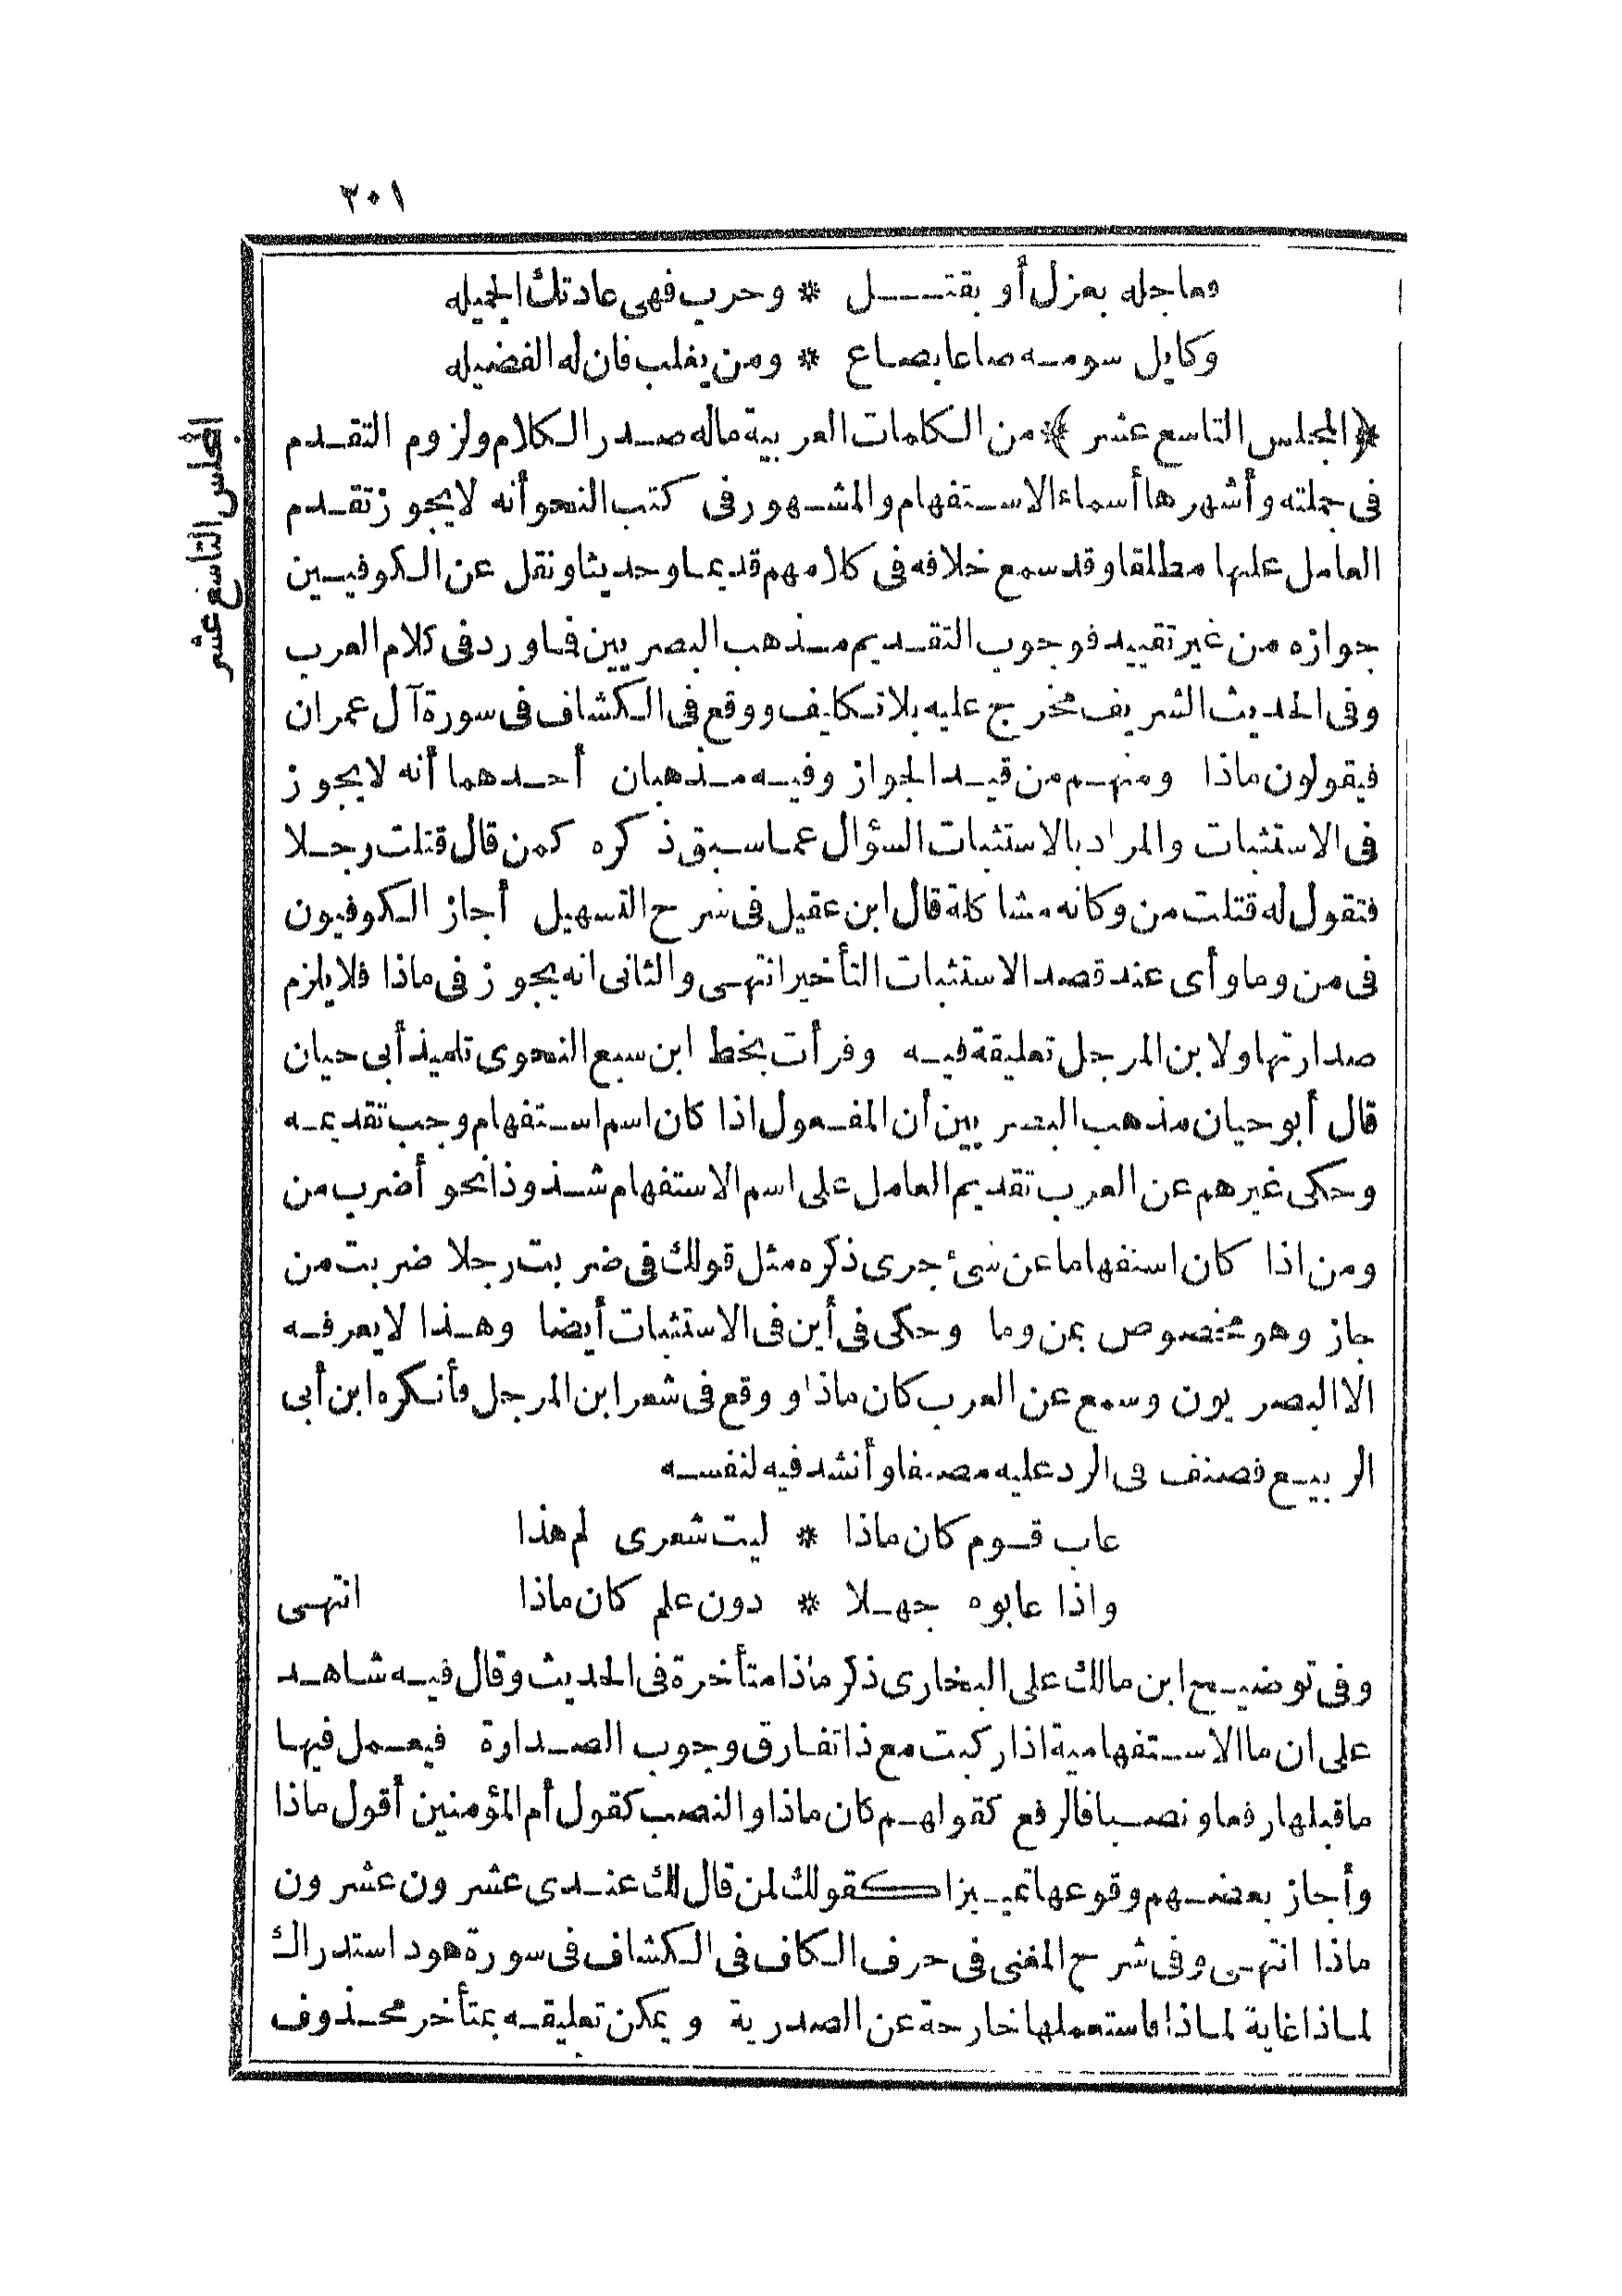 ٣٠١
فعاجله بعزل أو بقتل * وحرب فهى عادتك الجميله
وكايل سومه صاعا بصاع * ومن يغلب فان له الفضيله
﴿المجلس التاسع عشر﴾ من الكلمات العربية ماله صدر الكلام ولزوم التقدم
فى جملته وأشهرها أسماء الاستفهام والمشهور فى كتب النحو أنه لا يجوز تقدم
العامل عليها مطلقا وقد سمع خلافه فى كلامهم قديما وحديثا ونقل عن الكوفيين
جوازه من غير تقييد فوجوب التقديم مذهب البصريين فما ورد فى كلام العرب
وفى الحديث الشريف مخرج عليه بلا تكليف ووقع فى الكشاف فى سورة آل عمران
فيقولون ماذا ومنهم من قيد الجواز وفيه مذهبان أحدهما أنه لا يجوز
فى الاستثبات والمراد بالاستثبات السؤال عما سبق ذكره كمن قال قتلت رجلا
فتقول له قتلت من وكانه مشاكلة قال ابن عقيل فى شرح التسهيل أجاز الكوفيون
فى من وما وأى عند قصد الاستثبات التأخير انتهى والثانى انه يجوز فى ماذا فلا يلزم
صدارتها ولابن المرجل تعليقة فيه وقرأت بخط ابن سبع النحوى تلميذ أبى حيان
قال أبو حيان مذهب البصريين أن المفعول اذا كان اسم استفهام وجب تقديمه
وحكى غيرهم عن العرب تقديم العامل على اسم الاستفهام شذوذا نحو أضرب من
ومن اذا كان استفهاما عن شئ جرى ذكره مثل قولك فى ضربت رجلا ضربت من
جاز وهو مخصوص بمن وما وحكى فى أين فى الاستثبات أيضا وهذا لا يعرفه
الا البصريون وسمع عن العرب كان ماذا ووقع فى شعر ابن المرجل فأنكره ابن أبى
الربيع فصنف فى الرد عليه مصنفا وأنشد فيه لنفسه
عاب قوم كان ماذا * ليت شعرى لم هذا
واذا عابوه جهلا * دون علم كان ماذا انتهى
وفى توضيح ابن مالك على البخارى ذكر ماذا متأخرة فى الحديث وقال فيه شاهد
على ان ما الاستفهامية اذا ركبت مع ذا تفارق وجوب الصدارة فيعمل فيها
ما قبلها رفعا ونصبا فالرفع كقولهم كان ماذا والنصب كقول أم المؤمنين أقول ماذا
وأجاز بعضهم وقوعها تمييزا كقولك لمن قال لك عندى عشرون عشرون
ماذا انتهى وفى شرح المغنى فى حرف الكاف فى الكشاف فى سورة هود استدراك
لماذا غاية لماذا فاستعملها خارجة عن الصدرية ويمكن تعليقه بمتأخر محذوف
المجلس التاسع عشر